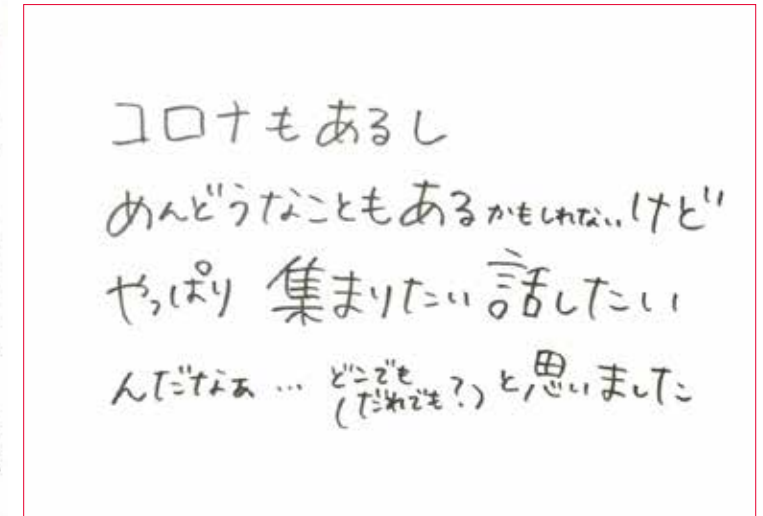 コロナもあるし
めんどうなこともあるかもしれないけど
やっぱり 集まりたい 話したい
んだなぁ… どこでも
(だれでも?)と思いました